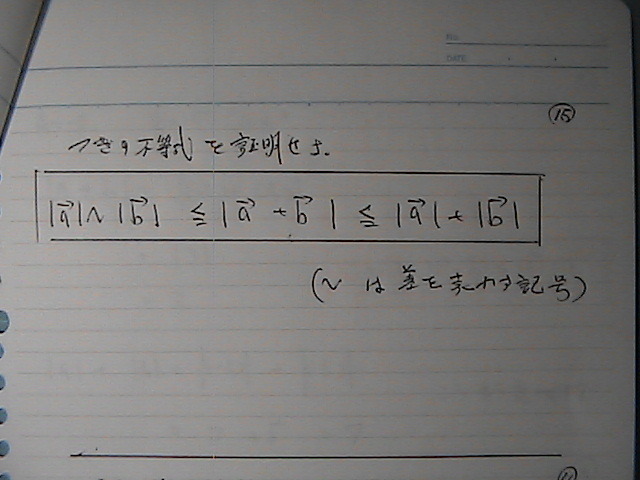 No.
DATE
15
つぎの不等式を証明せよ。
|a⃗|～|b⃗| ≦ |a⃗ + b⃗| ≦ |a⃗| + |b⃗|
(～は差を表わす記号)